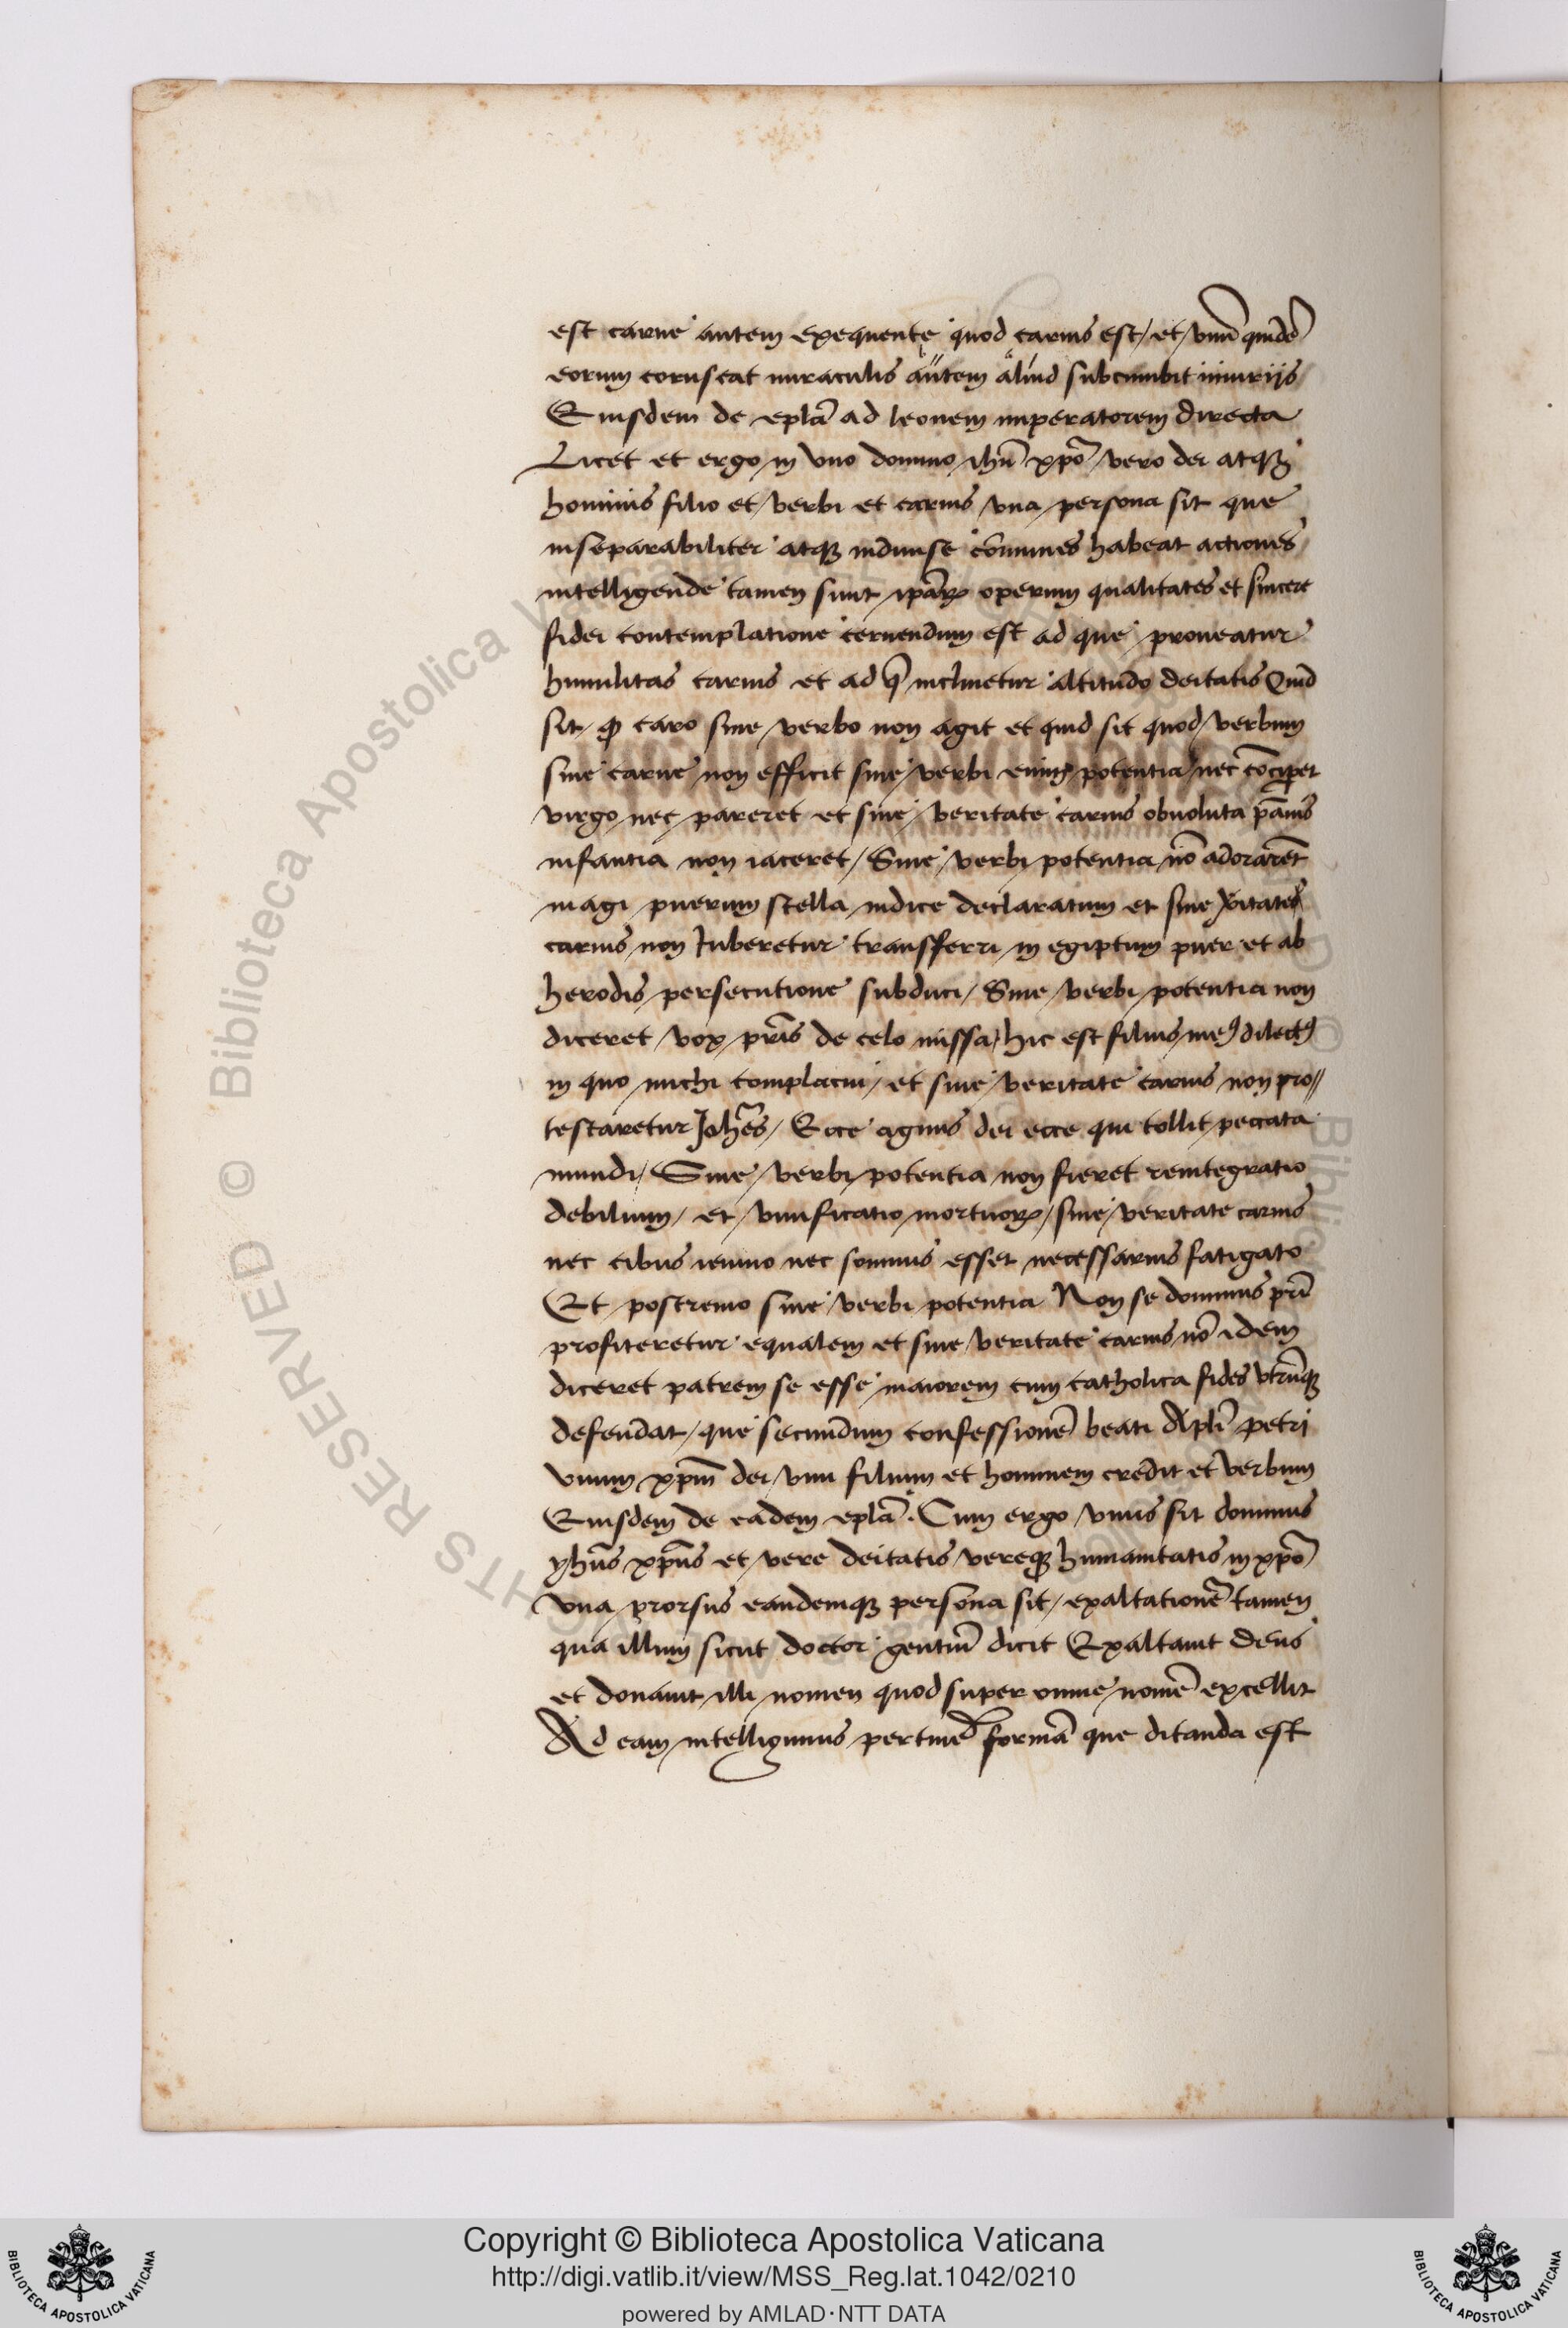 est carne autem exequente quod carnis est / et vnū quidē
eorum coruscat miraculis autem aliud subcumbit iniurijs
Eiusdem de eplā ad leonem imperatorem directa
Licet et ergo in vno domino ihū xpō vero dei atqꝫ
hominis filio et verbi et carnis vna persona sit que
inseparabiliter atqꝫ indiuise cōmunes habeat actiones
intelligende tamen sunt ipāꝝ operum qualitates et sincere
fidei contemplatione cernendum est ad que proueatur
humilitas carnis et ad q̄ inclinetur altitudo deitatis Quid
sit ꝙ caro sine verbo non agit et quid sit quod verbum
sine carne non efficit sine verbi enim potentia nec cōciperet
virgo nec pareret et sine veritate carnis obuoluta pānis
infantia non iaceret / Sine verbi potentia nō adorarēt
magi puerum stella indice declaratum et sine v̄itate
carnis non Iuberetur transferri in egiptum puer et ab
herodis persecutione subduci / Sine verbi potentia non
diceret vox pr̄is de celo missa / hic est filius meꝰ dilectꝰ
in quo michi complacui / et sine veritate carnis non pro//
testaretur Johēs / Ecce agnus dei ecce qui tollit peccata
mundi / Sine verbi potentia non fieret reintegratio
debilium / et viuificatio mortuoꝝ / sine veritate carnis
nec cibus ieiuno nec somnus esset necessarius fatigato
Et postremo sine verbi potentia Non se dominus pr̄i
profiteretur equalem et sine veritate carnis nō idem
diceret patrem se esse maiorem cum catholica fides vtrūqꝫ
defendat / que secundum confessionē beati Apl̄i petri
vnum xp̄m dei viui filium et hominem credit et verbum
Eiusdem de eadem eplā . Cum ergo vnus sit dominus
yhūs xp̄us et vere deitatis vereqꝫ humanitatis in xpō
vna prorsus eandemqꝫ persona sit / exaltationē tamen
qua illum sicut doctor gentiū dicit Exaltauit deus
et donauit illi nomen quod super omne nomē excellit
Ad eam intelligimus pertinē formā que ditanda est
© Biblioteca Apostolica Vaticana
Copyright © Biblioteca Apostolica Vaticana
http://digi.vatlib.it/view/MSS_Reg.lat.1042/0210
powered by AMLAD·NTT DATA
BIBLIOTECA APOSTOLICA VATICANA
BIBLIOTECA APOSTOLICA VATICANA